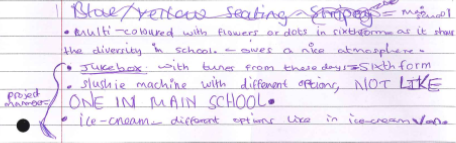 Blue/yellow seating - stripes = main school
• Multi-coloured with flowers or dots in sixthform as it shows
the diversity in school. - owes a nice atmosphere.
• Jukebox with tunes from these days = Sixth form
• Slushie machine with different options, NOT LIKE
ONE IN MAIN SCHOOL.
• ice-cream - different options like in ice-cream Van.
project